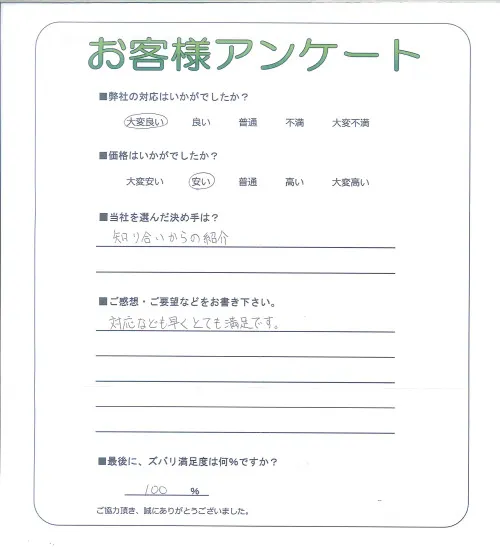 お客様アンケート
■弊社の対応はいかがでしたか？
大変良い 良い 普通 不満 大変不満
■価格はいかがでしたか？
大変安い 安い 普通 高い 大変高い
■当社を選んだ決め手は？
知り合いからの紹介
■ご感想・ご要望などをお書き下さい。
対応なども早くとても満足です。
■最後に、ズバリ満足度は何%ですか？
100 %
ご協力頂き、誠にありがとうございました。